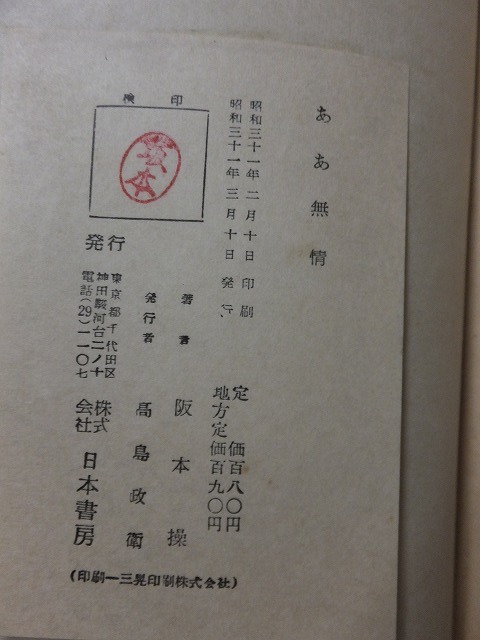 ああ無情
昭和三十一年二月十日 印刷
昭和三十一年三月十日 発行
検印
定価百八〇円
地方定価百九〇円
著者 阪本操
発行者 髙島政衛
発行
東京都千代田区
神田駿河台二ノ十
電話(29)一一〇七
株式会社 日本書房
(印刷—三晃印刷株式会社)